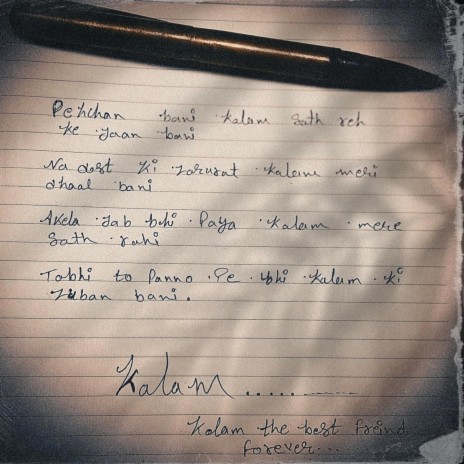 Pehchan bani Kalam sath reh
ke Jaan bani
Na dost Ki Zarurat Kalam meri
dhaal bani
Akela Jab bhi Paya Kalam mere
Sath rahi
Tabhi to Panno Pe bhi Kalam Ki
Zuban bani.
Kalam ............
Kalam the best freind
forever...